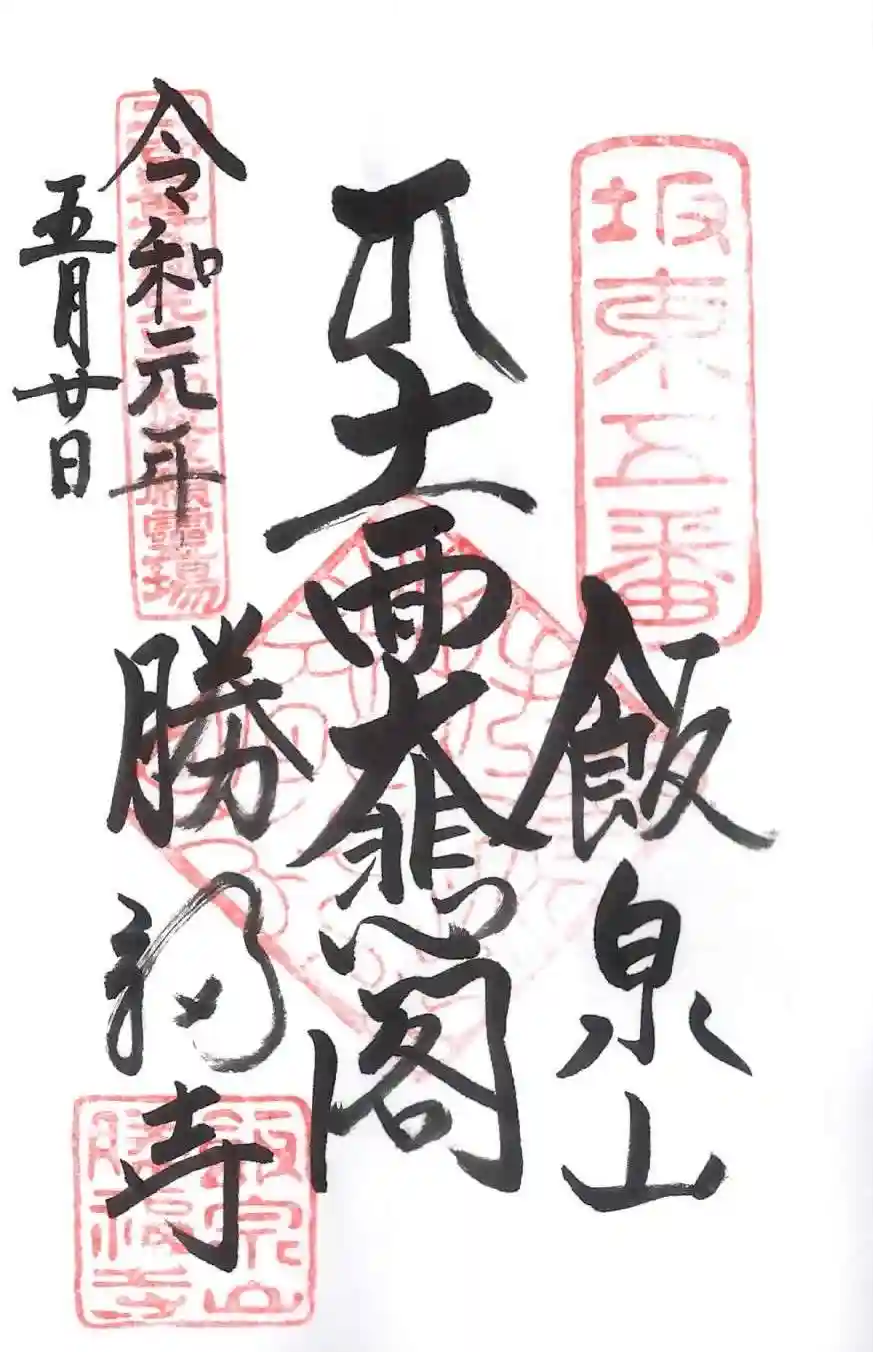 坂東五番
飯泉山
十一面大悲閣
令和元年
五月廿日
勝福寺
飯泉山
勝福寺